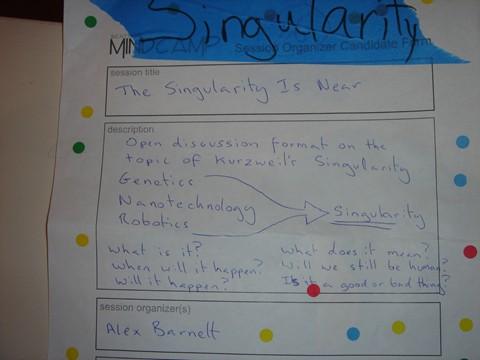 Singularity
MINDCAMP Session Organizer Candidate Form
session title
The Singularity Is Near
description
Open discussion format on the
topic of Kurzweil's Singularity
Genetics
Nanotechnology
Robotics
Singularity
What is it?
When will it happen?
Will it happen?
What does it mean?
Will we still be human?
Is it a good or bad thing?
session organizer(s)
Alex Barnett